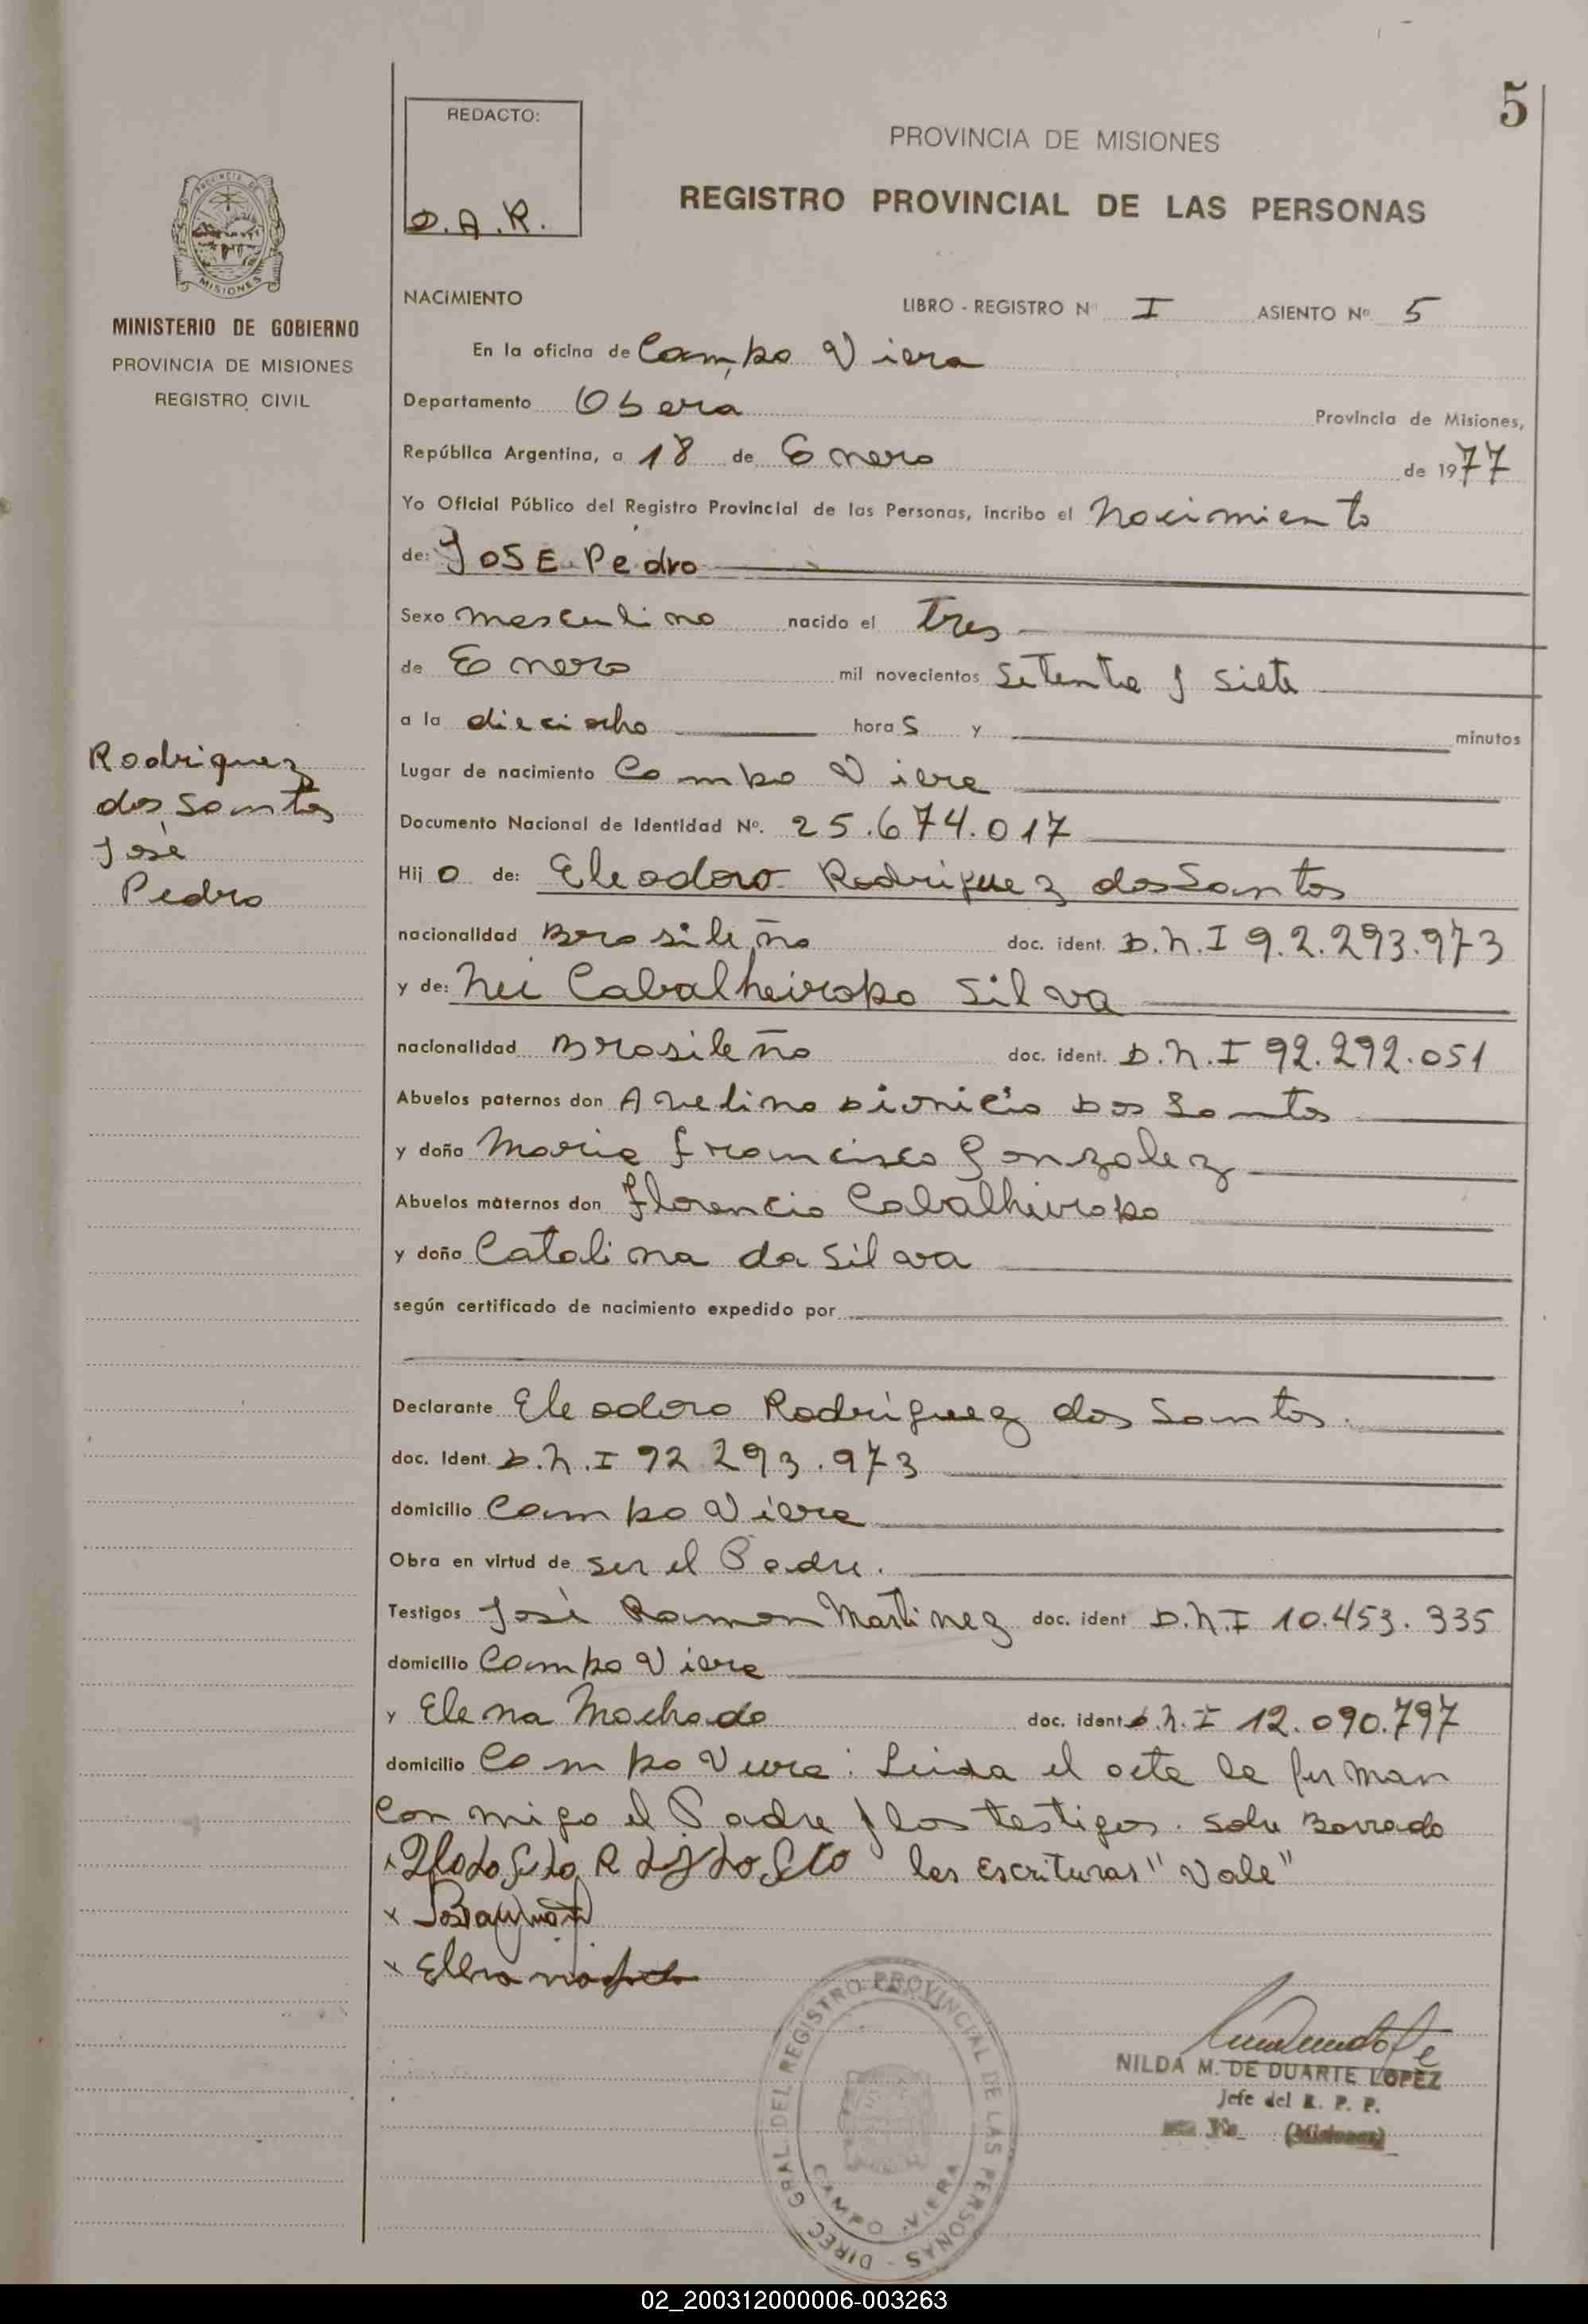 5
REDACTO:
D.A.R.
PROVINCIA DE MISIONES
REGISTRO PROVINCIAL DE LAS PERSONAS
PROVINCIA DE
MISIONES
MINISTERIO DE GOBIERNO
PROVINCIA DE MISIONES
REGISTRO CIVIL
NACIMIENTO LIBRO - REGISTRO Nº I ASIENTO Nº 5
En la oficina de Campo Viera
Departamento Obera Provincia de Misiones,
República Argentina, a 18 de Enero de 1977
Yo Oficial Público del Registro Provincial de las Personas, incribo el Nacimiento
de: JOSE Pedro
Sexo masculino nacido el tres
de Enero mil novecientos setenta y siete
a la dieciocho horas y minutos
Rodriguez
dos Santos
José
Pedro
Lugar de nacimiento Campo Viera
Documento Nacional de Identidad Nº. 25.674.017
Hijo de: Eleodoro Rodriguez dos Santos
nacionalidad Brasileña doc. ident. D.N.I 9.2.293.973
y de: Nei Cabalheiropo Silva
nacionalidad Brasileña doc. ident. D.N.I 92.292.051
Abuelos paternos don Avelino Dionicio Dos Santos
y doña Maria Francisca Gonzalez
Abuelos maternos don Florencio Cabalheiropo
y doña Catalina da Silva
según certificado de nacimiento expedido por
Declarante Eleodoro Rodriguez dos Santos.
doc. Ident. D.N.I 92 293.973
domicilio Campo Viera
Obra en virtud de ser el Padre.
Testigos José Ramon Martinez doc. ident D.N.I 10.453.335
domicilio Campo Viera
y Elena Machado doc. ident D.N.I 12.090.797
domicilio Campo Viera: Leida el acta la firman
con migo el Padre y los testigos. Sobre Borrado
las Escrituras "Vale"
x
x Elena
DIREC. GRAL. DEL REGISTRO PROVINCIAL DE LAS PERSONAS -
CAMPO VIERA
NILDA M. DE DUARTE LOPEZ
Jefe del R. P. P.
(Misiones)
02_200312000006-003263